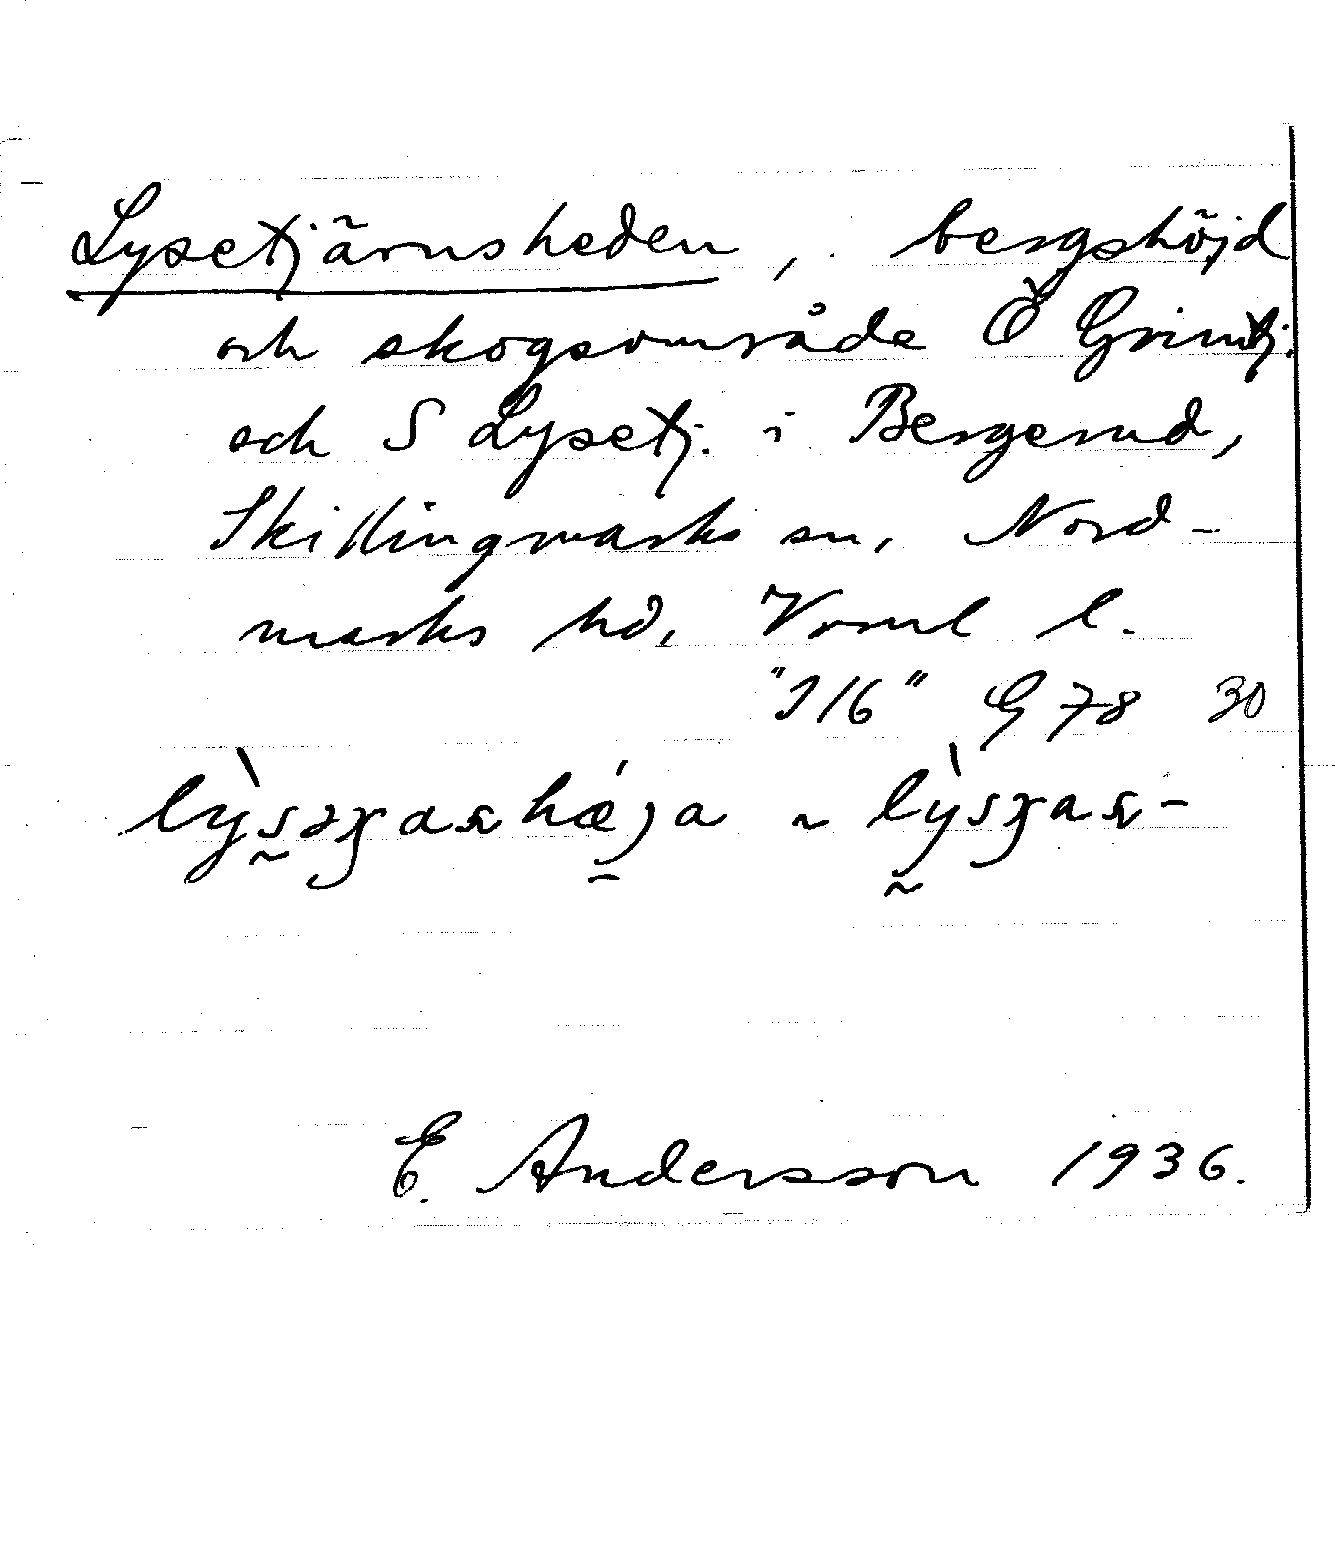 Lysetjärnsheden, bergshöjd
och skogsområde Ö Grimtj.
och S Lysetj. i Bergerud,
Skillingmarks sn, Nord-
marks hd, Vrml l.
"J16" G 78 30
E. Andersson 1936.